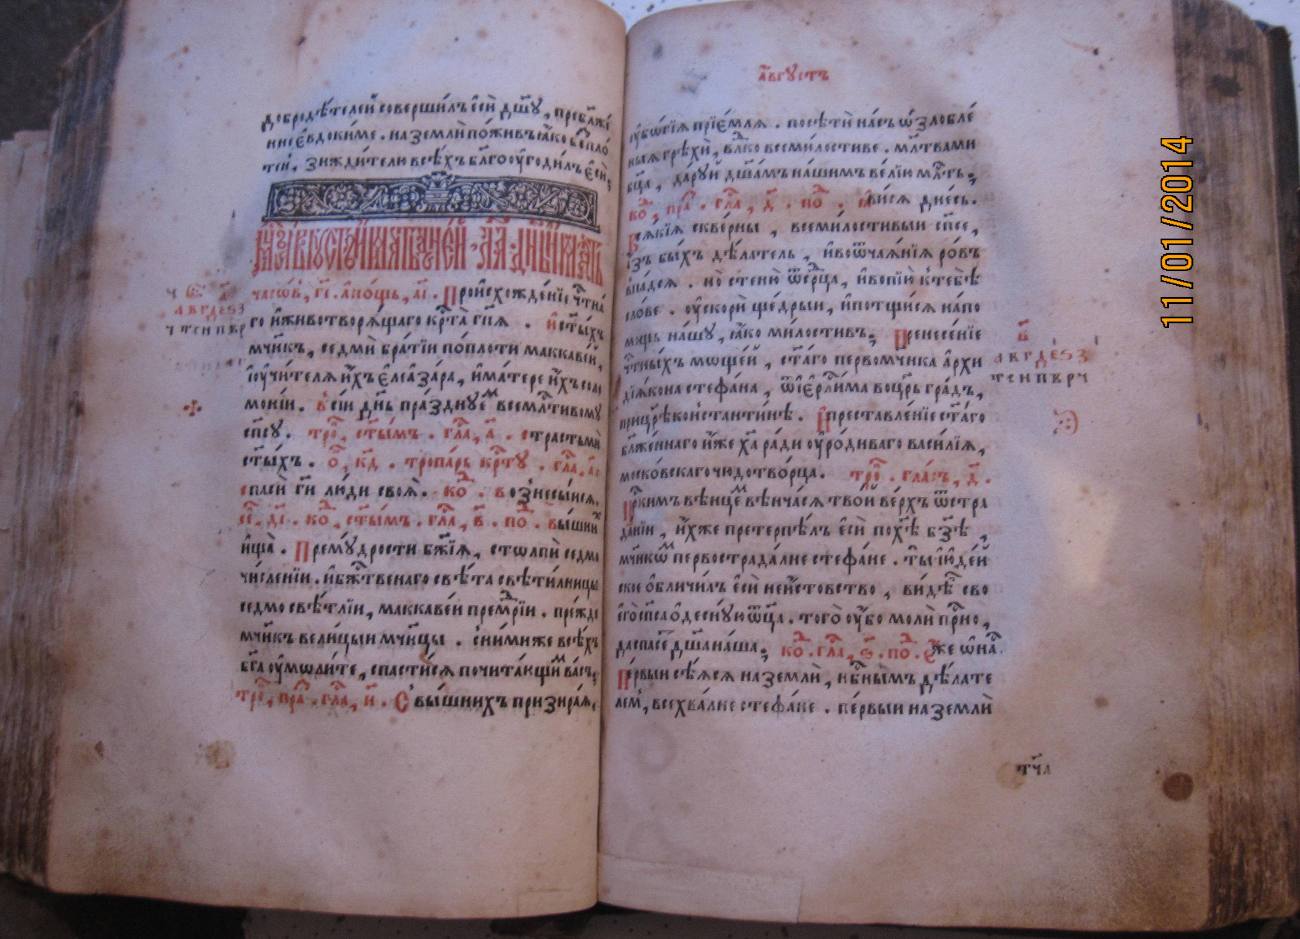 добродѣ́телей совершилъ є҆сѝ дш҃у, пребл҃же
нне є҆вдокиме. на землѝ пожи́въ ꙗ҆́ко беспло́
тенъ, зижди́телю всѣ́хъ бл҃гоугоди́лъ є҆сѝ,
часо́въ, г҃і. а҆ но́щь, а҃і. Происхожде́нїе чтⷭ҇на́
го и҆ животворѧ́щаго крⷭ҇та̀ гдⷭ҇нѧ. и҆ ст҃ы́хъ
мч҃нкъ, седмѝ бра́тїи по пло́ти маккаве́й,
и҆ ᲂу҆чи́телѧ и҆́хъ є҆леаза́ра, и҆ ма́тере и҆́хъ соло
моні́и. в се́й дн҃ь пра́зднуемъ всемлⷭ҇тивому
сп҃су. тро, ст҃ы́мъ. гла, а҃. страстьмѝ
ст҃ы́хъ. ѻ҆, к҃д. тропа́рь крⷭ҇ту. гла, а҃.
спасѝ гдⷭ҇и лю́ди своѧ̀. ко. вознесы́йсѧ.
ко. ст҃ы́мъ. гла, в҃. по. вы́шнихъ
и҆ща̀. Прему́дрости бж҃їѧ, столпѝ седмо
чи́сленїи. и҆ бжⷭ҇твенаго свѣ́та свѣти́лницы
седмосвѣ́тлїи, маккаве́и премⷣрїи. пре́жде
мч҃нкъ вели́цыи мч҃нцы. с ни́миже всѣ́хъ
бг҃а ᲂу҆моли́те, спасти́сѧ почита́ющимъ ва́съ,
тро, пра. гла, и҃. С вы́шнихъ призира́ѧ,
а҆́вгустъ
ᲂу҆бѡ́гїѧ прїе́млѧ. посѣтѝ на́съ ѡ҆зло́бле
ныѧ грѣхѝ, влⷣко всеми́лостиве. мл҃твами
бц҃а, да́руй дш҃а́мъ на́шимъ ве́лїи млⷭ҇ть,
ко, пра. гла, д҃. по. ꙗ҆ви́сѧ дне́сь.
Всѧ́кїѧ скве́рны, всеми́лостивыи сп҃се,
а҆́зъ бы́хъ дѣ́латель, и҆ во ѿча́ѧнїѧ ро́въ
впадо́хъ. но стеню̀ ѿ срⷣца, и҆ вопїю̀ к тебѣ̀
сло́ве. ᲂу҆скорѝ ще́дрыи, и҆ потщи́сѧ на по́
мощь на́шу, ꙗ҆́ко ми́лостивъ. Принесе́нїе
чтⷭ҇ны́хъ моще́й, ст҃а́го первомч҃нка а҆рхи
дїѧ́кона стефа́на, ѿ і҆ерⷭ҇ли́ма во цр҃ь гра́дъ,
при цр҃ѣ ко́нстанти́нѣ. И҆ преставле́нїе ст҃а́го
бл҃же́ннаго и҆́же хрⷭ҇та̀ ра́ди ᲂу҆ро́диваго васи́лїѧ,
моско́вскаго чюдотво́рца. тро. гла́съ, д҃.
Цр҃кимъ вѣнце́мъ вѣнча́сѧ тво́й ве́рхъ ѿ стра
да́нїи, и҆́хже претерпѣ́лъ є҆сѝ по хрⷭ҇тѣ̀ бз҃ѣ,
мч҃нкѡмъ первострада́лне стефа́не. ты̀ і҆ю҆де́й
ское ѡ҆бличи́лъ є҆сѝ неи́стовство, ви́дѣ сво
є҆го̀ сп҃са ѻ҆десну́ю ѿц҃а. того̀ ᲂу҆́бо молѝ при́но,
да спасе́ дш҃а на́ша. ко. гла, ѕ҃. по. Є҆́же ѡ҆ на́.
Пе́рвыи сѣ́ѧсѧ на землѝ, нбⷭ҇нымъ дѣ́лате
лем, всехва́лне стефа́не. пе́рвыи на землѝ
тч҃а
11/01/2014